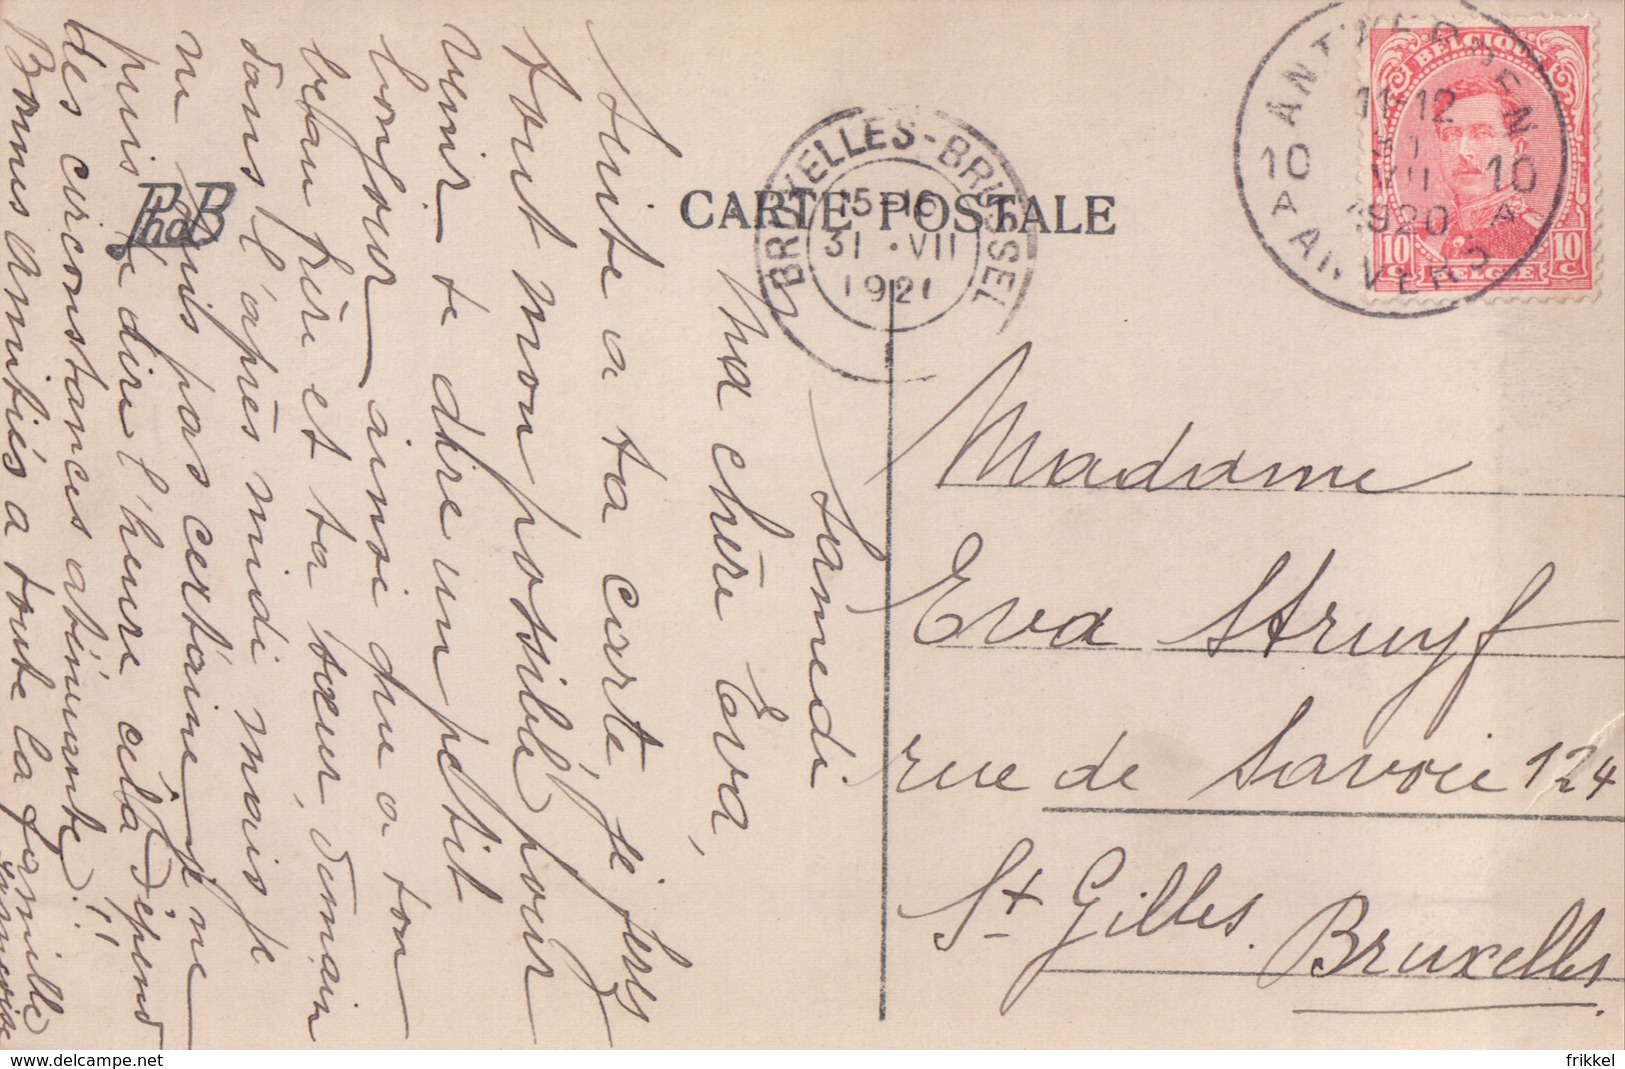 Samedi
Ma chère Eva,
Suite a ta carte je fers
tout mon possible pour
venir te dire un petit
bonjour ainsi qu'a ton
beau frère et ta sœur, demain
dans l'après midi mais je
ne suis pas certaine je ne
puis te dire l'heure cela dépend
des circonstances atténuante!!
Bonnes Amitiés a toute la famille
PhoB
CARTE POSTALE
BRUXELLES-BRUSSEL
15-16
31 · VII
1921
ANTWERPEN
11-12
31
VII
1920
10 10
A A
ANVERS
BELGIQUE
10c 10c
BELGIË
Madame
Eva Struyf
rue de Savoie 124
St Gilles.
Bruxelles
frikkel
www.delcampe.net